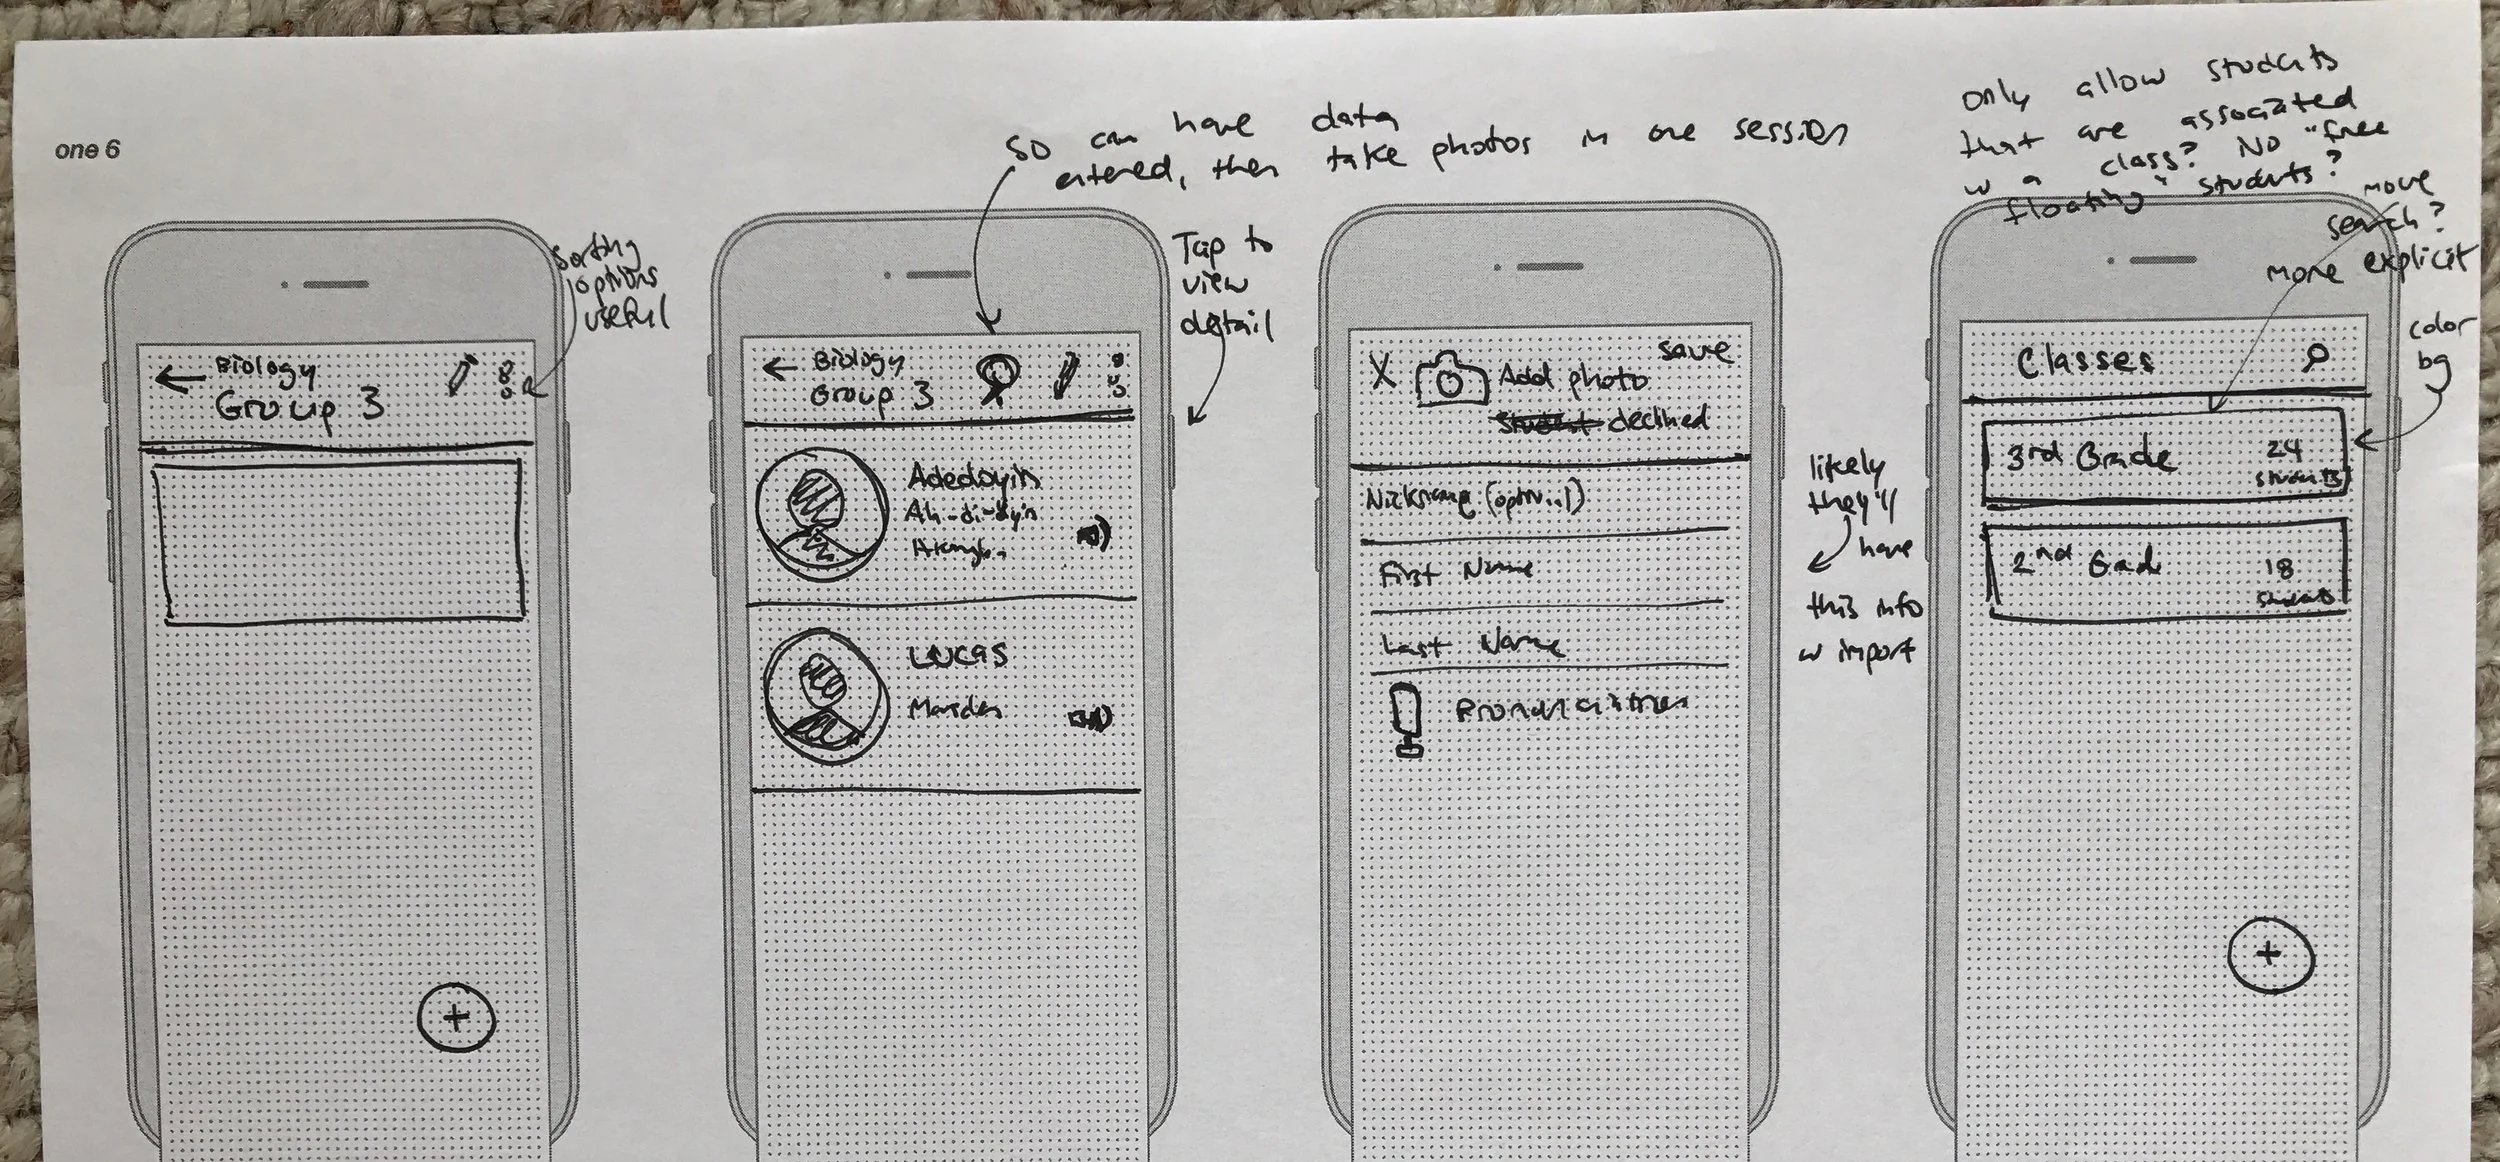 one 6
so can have data
entered, then take photos in one session
only allow students
that are associated
w a class? No "free
floating" students?
move
search?
more explicit
color
bg
Sorting
options
useful
Tap to
view
detail
likely
they'll
have
this info
w import
← Biology
Group 3
+
← Biology
Group 3
Adedoyin
Ah-di-dyin
Lucas
X Add photo save
declined
Nickname
First Name
Last Name
Classes
3rd Grade 24
students
2nd Grad 18
students
+